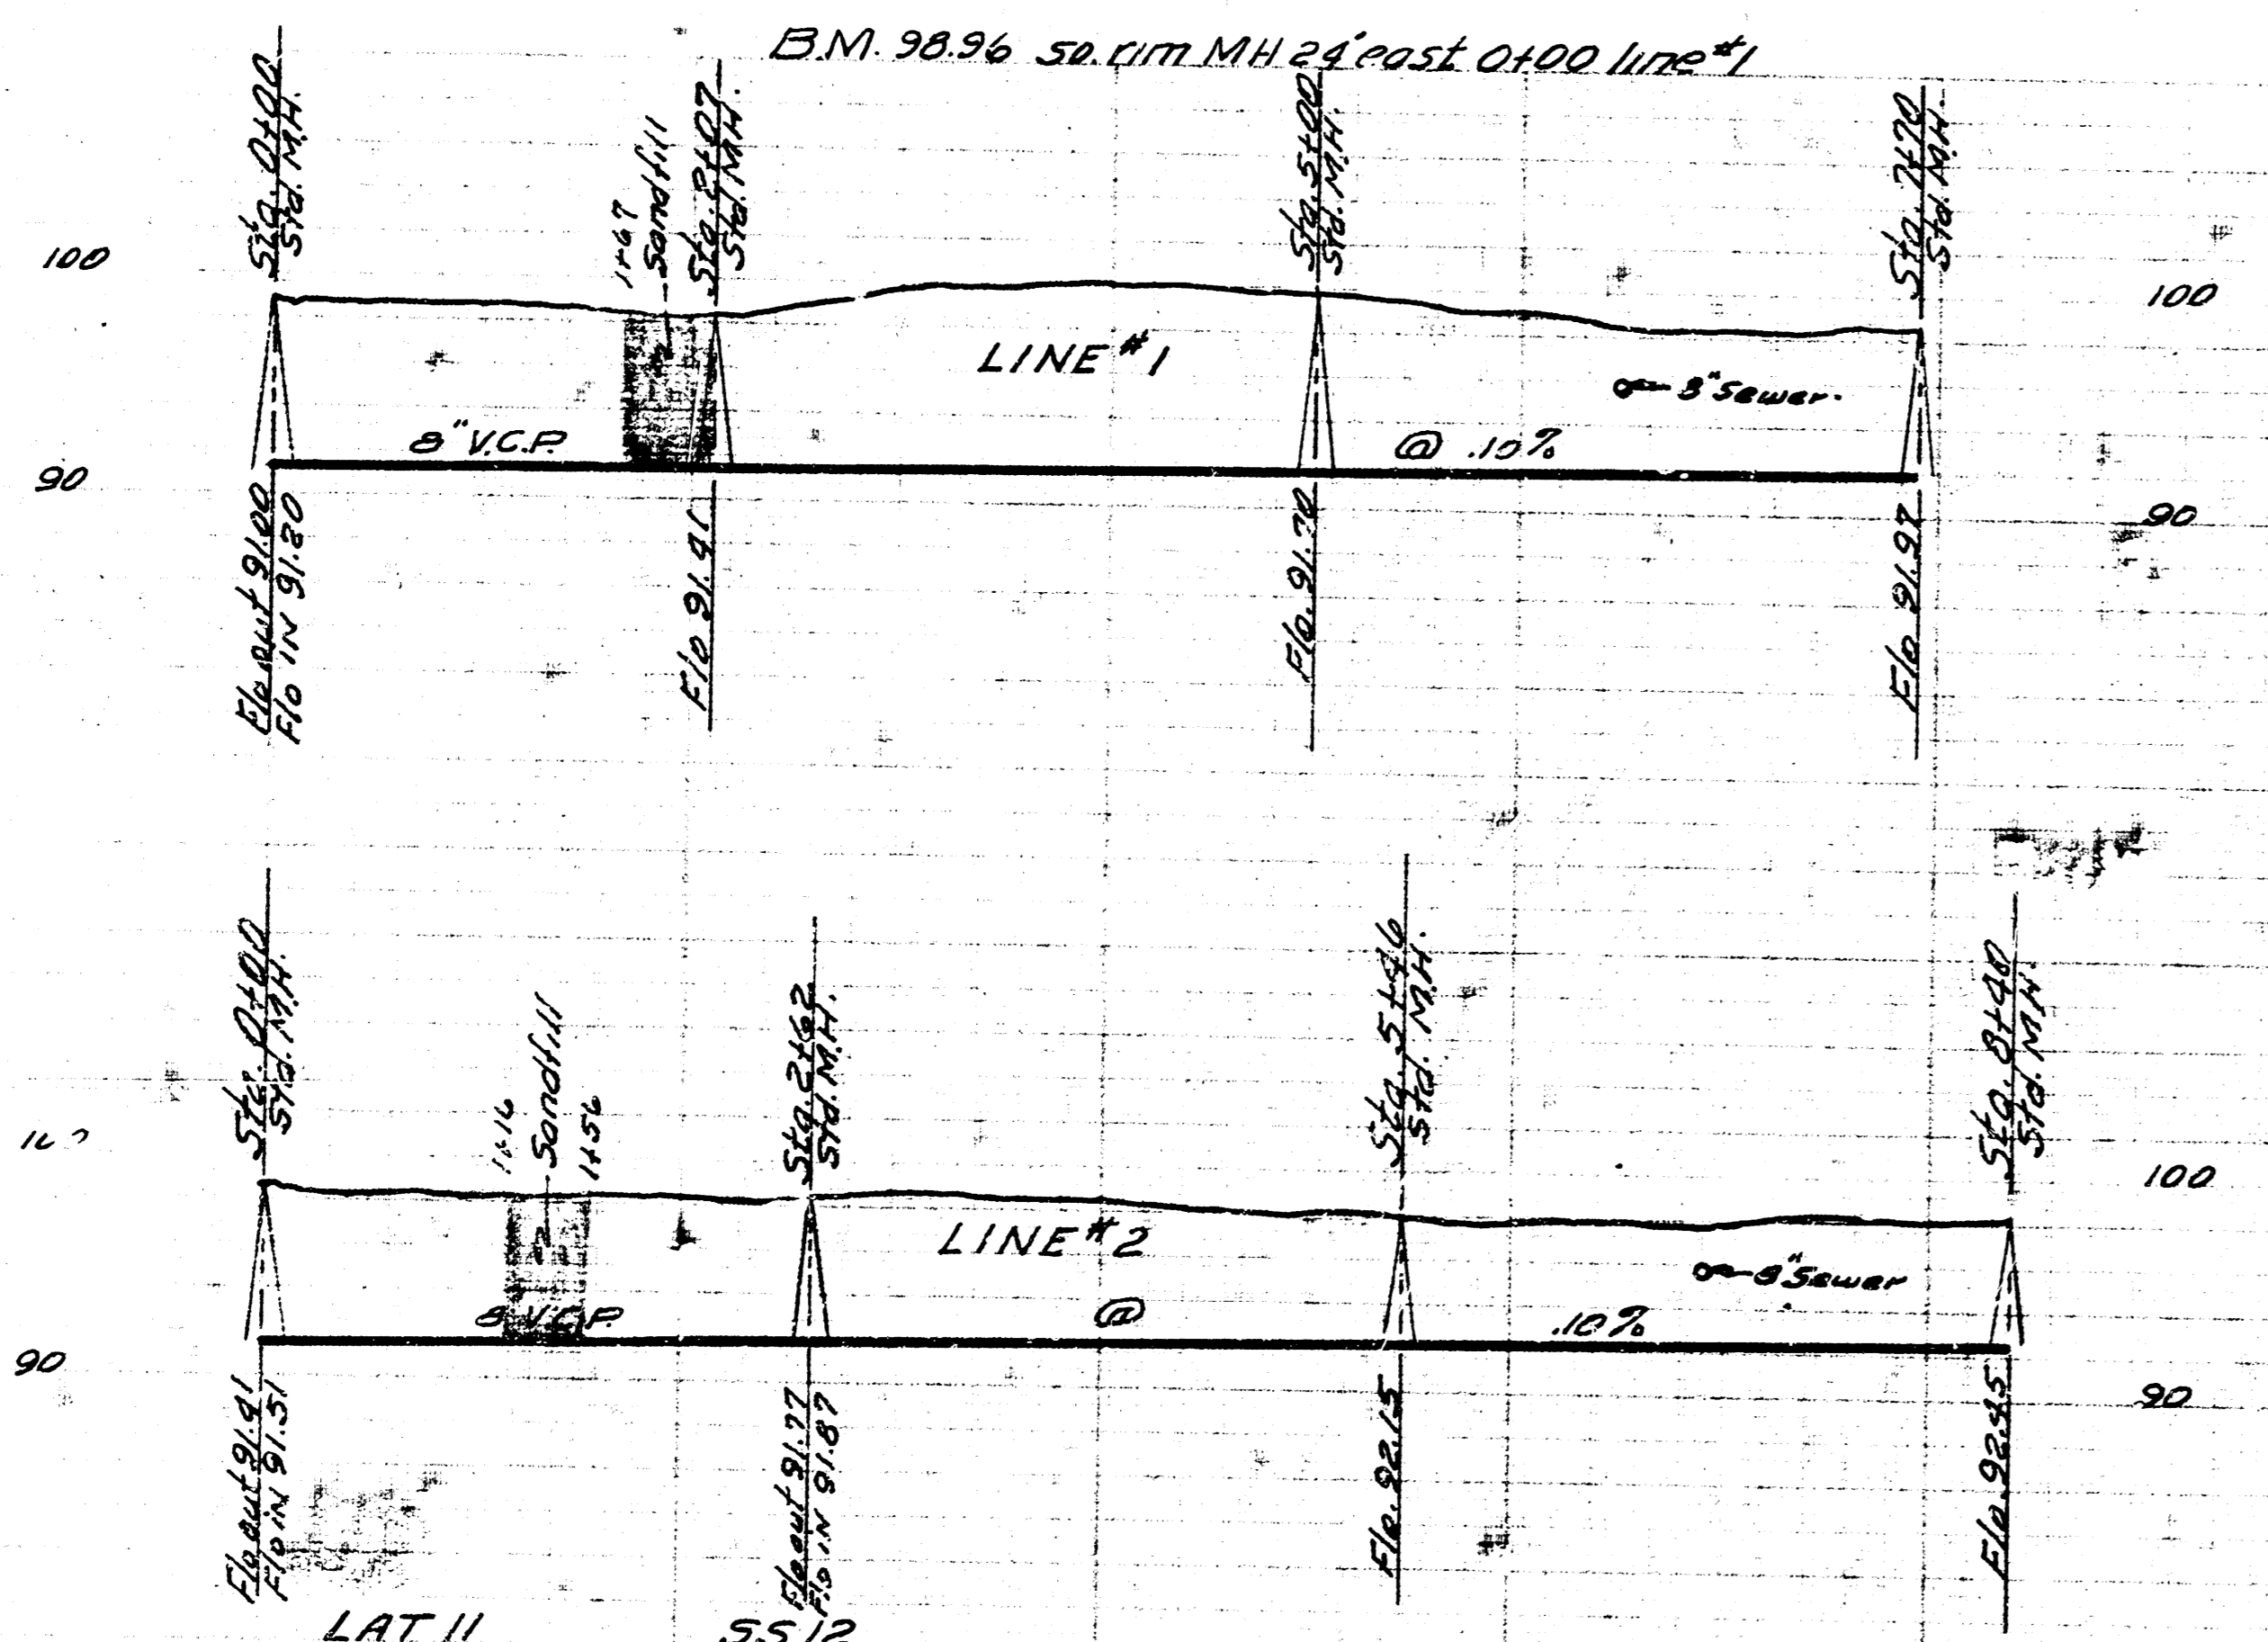 B.M. 98.96 so. rim MH 24' east 0+00 line #1
Sta. 0+00
Std. M.H.
1+67
Sandfill
Sta. 2+07
Std. M.H.
Sta. 5+00
Std. M.H.
Sta. 7+70
Std. M.H.
100
100
LINE #1
8" Sewer.
8" V.C.P.
@ .10%
90
90
Flo out 91.00
Flo IN 91.20
Flo 91.41
Flo. 91.70
Flo 91.97
Sta. 0+00
Std. M.H.
1+16
Sandfill
1+56
Sta. 2+62
Std. M.H.
Sta. 5+46
Std. M.H.
Sta. 8+40
Std. M.H.
100
LINE #2
8" Sewer
8 V.C.P.
@
.10%
90
90
Flo out 91.41
Flo IN 91.51
Flo out 91.77
Flo IN 91.87
Flo. 92.15
Flo. 92.45
LAT 11
SS 12